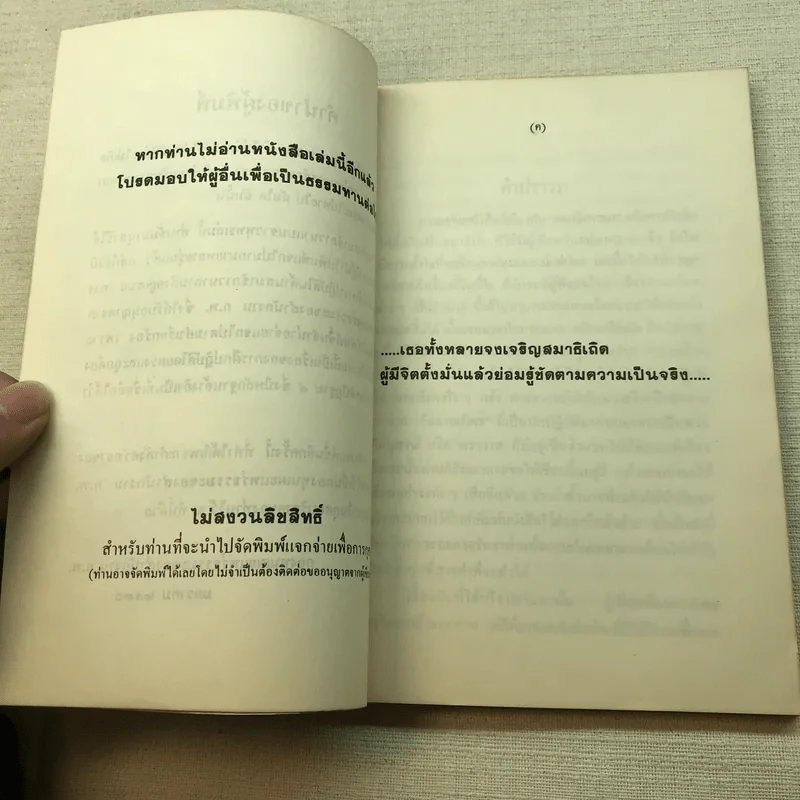 หากท่านไม่อ่านหนังสือเล่มนี้อีกแล้ว
โปรดมอบให้ผู้อื่นเพื่อเป็นธรรมทานต่อ
ไม่สงวนลิขสิทธิ์
สำหรับท่านที่จะนำไปจัดพิมพ์แจกจ่ายเพื่อการ
(ท่านอาจจัดพิมพ์ได้เลยโดยไม่จำเป็นต้องติดต่อขออนุญาตจาก
(ค)
.....เธอทั้งหลายจงเจริญสมาธิเถิด
ผู้มีจิตตั้งมั่นแล้วย่อมรู้ชัดตามความเป็นจริง.....